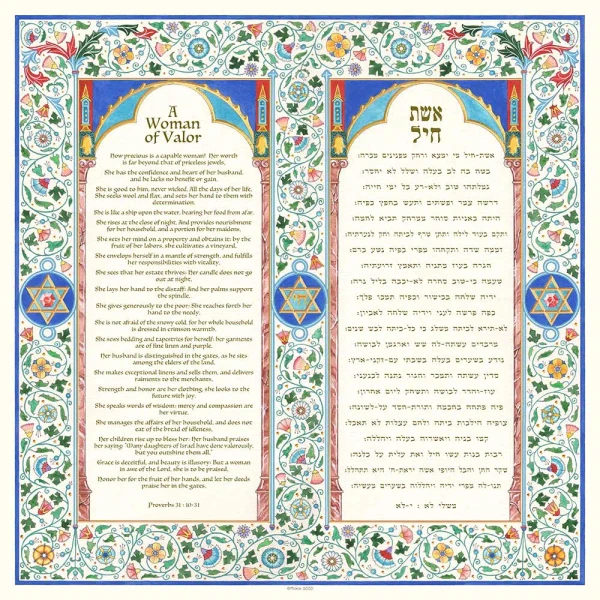 A
Woman
of Valor
How precious is a capable woman! Her worth
is far beyond that of priceless jewels.
She has the confidence and heart of her husband,
and he lacks no benefit or gain.
She is good to him, never wicked. All the days of her life,
She seeks wool and flax, and sets her hand to them with
determination.
She is like a ship upon the water, bearing her food from afar.
She rises at the close of night. And provides nourishment
for her household, and a portion for her maidens.
She sets her mind on a property and obtains it; by the
fruit of her labors, she cultivates a vineyard.
She envelops herself in a mantle of strength, and fulfills
her responsibilities with vitality.
She sees that her estate thrives: Her candle does not go
out at night.
She lays her hand to the distaff: And her palms support
the spindle.
She gives generously to the poor: She reaches forth her
hand to the needy.
She is not afraid of the snowy cold, for her whole household
is dressed in crimson warmth.
She sews bedding and tapestries for herself; her garments
are of fine linen and purple.
Her husband is distinguished in the gates, as he sits
among the elders of the land.
She makes exceptional linens and sells them, and delivers
raiments to the merchants.
Strength and honor are her clothing, she looks to the
future with joy.
She speaks words of wisdom; mercy and compassion are
her virtue.
She manages the affairs of her household, and does not
eat of the bread of idleness.
Her children rise up to bless her: Her husband praises
her saying "Many daughters of Israel have done valorously,
but you outshine them all."
Grace is deceitful, and beauty is illusory: But a woman
in awe of the Lord, she is to be praised.
Honor her for the fruit of her hands, and let her deeds
praise her in the gates.
Proverbs 31 : 10-31
אשת
חיל
אשת-חיל מי ימצא ורחק מפנינים מכרה:
בטח בה לב בעלה ושלל לא יחסר:
גמלתהו טוב ולא-רע כל ימי חייה:
דרשה צמר ופשתים ותעש בחפץ כפיה:
היתה כאניות סוחר ממרחק תביא לחמה:
ותקם בעוד לילה ותתן טרף לביתה וחק לנערתיה:
זממה שדה ותקחהו מפרי כפיה נטע כרם:
חגרה בעוז מתניה ותאמץ זרועתיה:
טעמה כי-טוב סחרה לא-יכבה בליל נרה:
ידיה שלחה בכישור וכפיה תמכו פלך:
כפה פרשה לעני וידיה שלחה לאביון:
לא-תירא לביתה משלג כי כל-ביתה לבש שנים:
מרבדים עשתה-לה שש וארגמן לבושה:
נודע בשערים בעלה בשבתו עם-זקני-ארץ:
סדין עשתה ותמכר וחגור נתנה לכנעני:
עוז-והדר לבושה ותשחק ליום אחרון:
פיה פתחה בחכמה ותורת-חסד על-לשונה:
צופיה הילכות ביתה ולחם עצלות לא תאכל:
קמו בניה ויאשרוה בעלה ויהללה:
רבות בנות עשו חיל ואת עלית על כלנה:
שקר החן והבל היופי אשה יראת-ה' היא תתהלל:
תנו-לה מפרי ידיה ויהללוה בשערים מעשיה:
משלי לא : י-לא